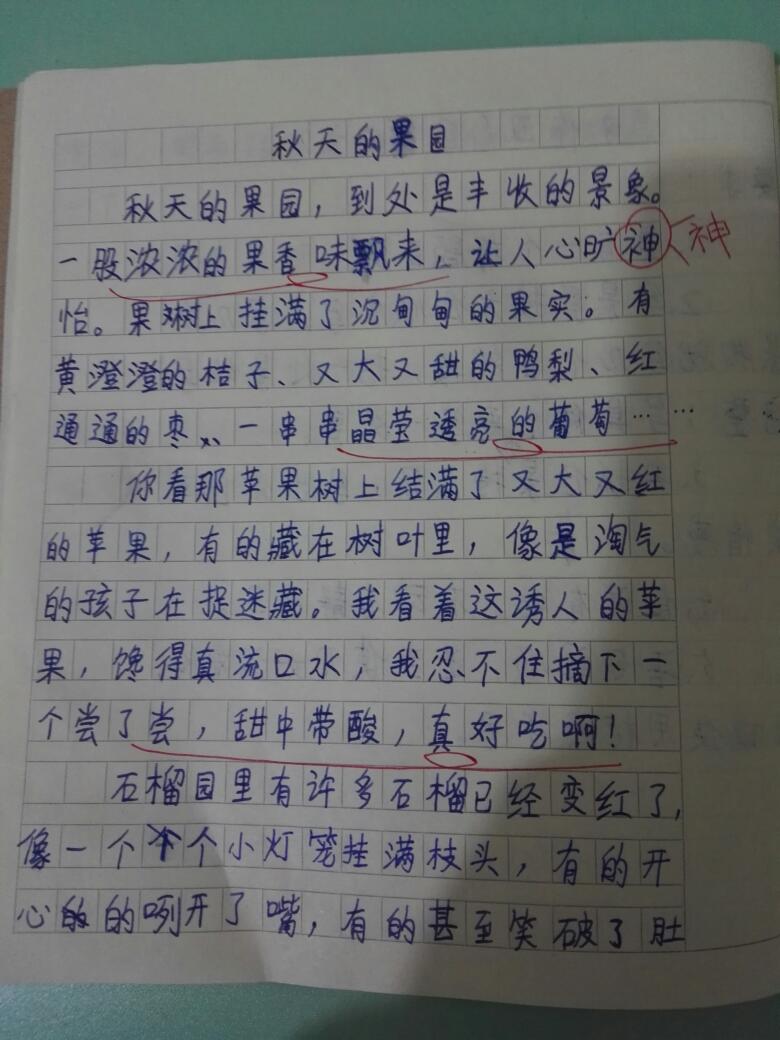 秋天的果园
秋天的果园，到处是丰收的景象。
一股浓浓的果香味飘来，让人心旷神
神
怡。果树上挂满了沉甸甸的果实。有
黄澄澄的桔子、又大又甜的鸭梨、红
通通的枣、一串串晶莹透亮的葡萄……
你看那苹果树上结满了又大又红
的苹果，有的藏在树叶里，像是淘气
的孩子在捉迷藏。我看着这诱人的苹
果，馋得真流口水，我忍不住摘下一
个尝了尝，甜中带酸，真好吃啊！
石榴园里有许多石榴已经变红了，
像一个个小灯笼挂满枝头，有的开
心的咧开了嘴，有的甚至笑破了肚